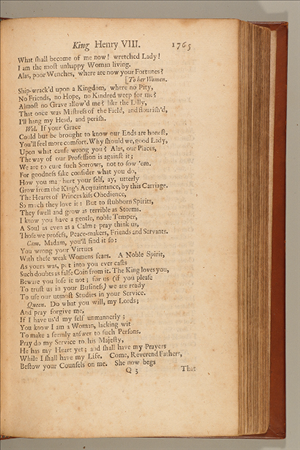 King Henry VIII. 1765
What shall become of me now! wretched Lady!
I am the most unhappy Woman living.
Alas, poor Wenches, where are now your Fortunes?
[To her Women.
Ship-wrack'd upon a Kingdom, where no Pity,
No Friends, no Hope, no Kindred weep for me?
Almost no Grave allow'd me? like the Lilly,
That once was Mistress of the Field, and flourish'd,
I'll hang my Head, and perish.
Wol. If your Grace
Could but be brought to know our Ends are honest,
You'd feel more comfort. Why should we, good Lady,
Upon what cause wrong you? Alas, our Places,
The way of our Profession is against it;
We are to cure such Sorrows, not to sow 'em.
For goodness sake consider what you do,
How you may hurt your self, ay, utterly
Grow from the King's Acquaintance, by this Carriage.
The Hearts of Princes kiss Obedience,
So much they love it: But to stubborn Spirits,
They swell and grow as terrible as Storms.
I know you have a gentle, noble Temper,
A Soul as even as a Calm; pray think us,
Those we profess, Peace-makers, Friends and Servants.
Cam. Madam, you'll find it so:
You wrong your Virtues
With these weak Womens fears. A Noble Spirit,
As yours was, put into you ever casts
Such doubts as false Coin from it. The King loves you,
Beware you lose it not; for us (if you please
To trust us in your Business) we are ready
To use our utmost Studies in your Service.
Queen. Do what you will, my Lords;
And pray forgive me,
If I have us'd my self unmannerly;
You know I am a Woman, lacking wit
To make a seemly answer to such Persons.
Pray do my Service to his Majesty,
He has my Heart yet; and shall have my Prayers
While I shall have my Life. Come, Reverend Fathers,
Bestow your Counsels on me. She now begs
Q 3 That